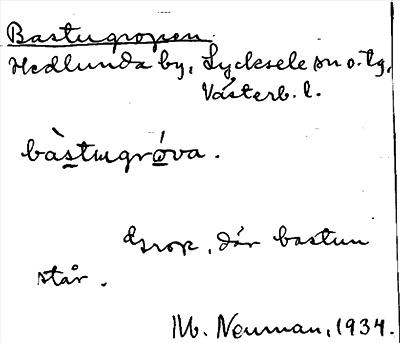 Bastugropen
Hedlunda by, Lycksele sn o. tg,
Västerb. l.
bàstugró̱va.
Grop, där bastun
står.
M. Neuman, 1934.